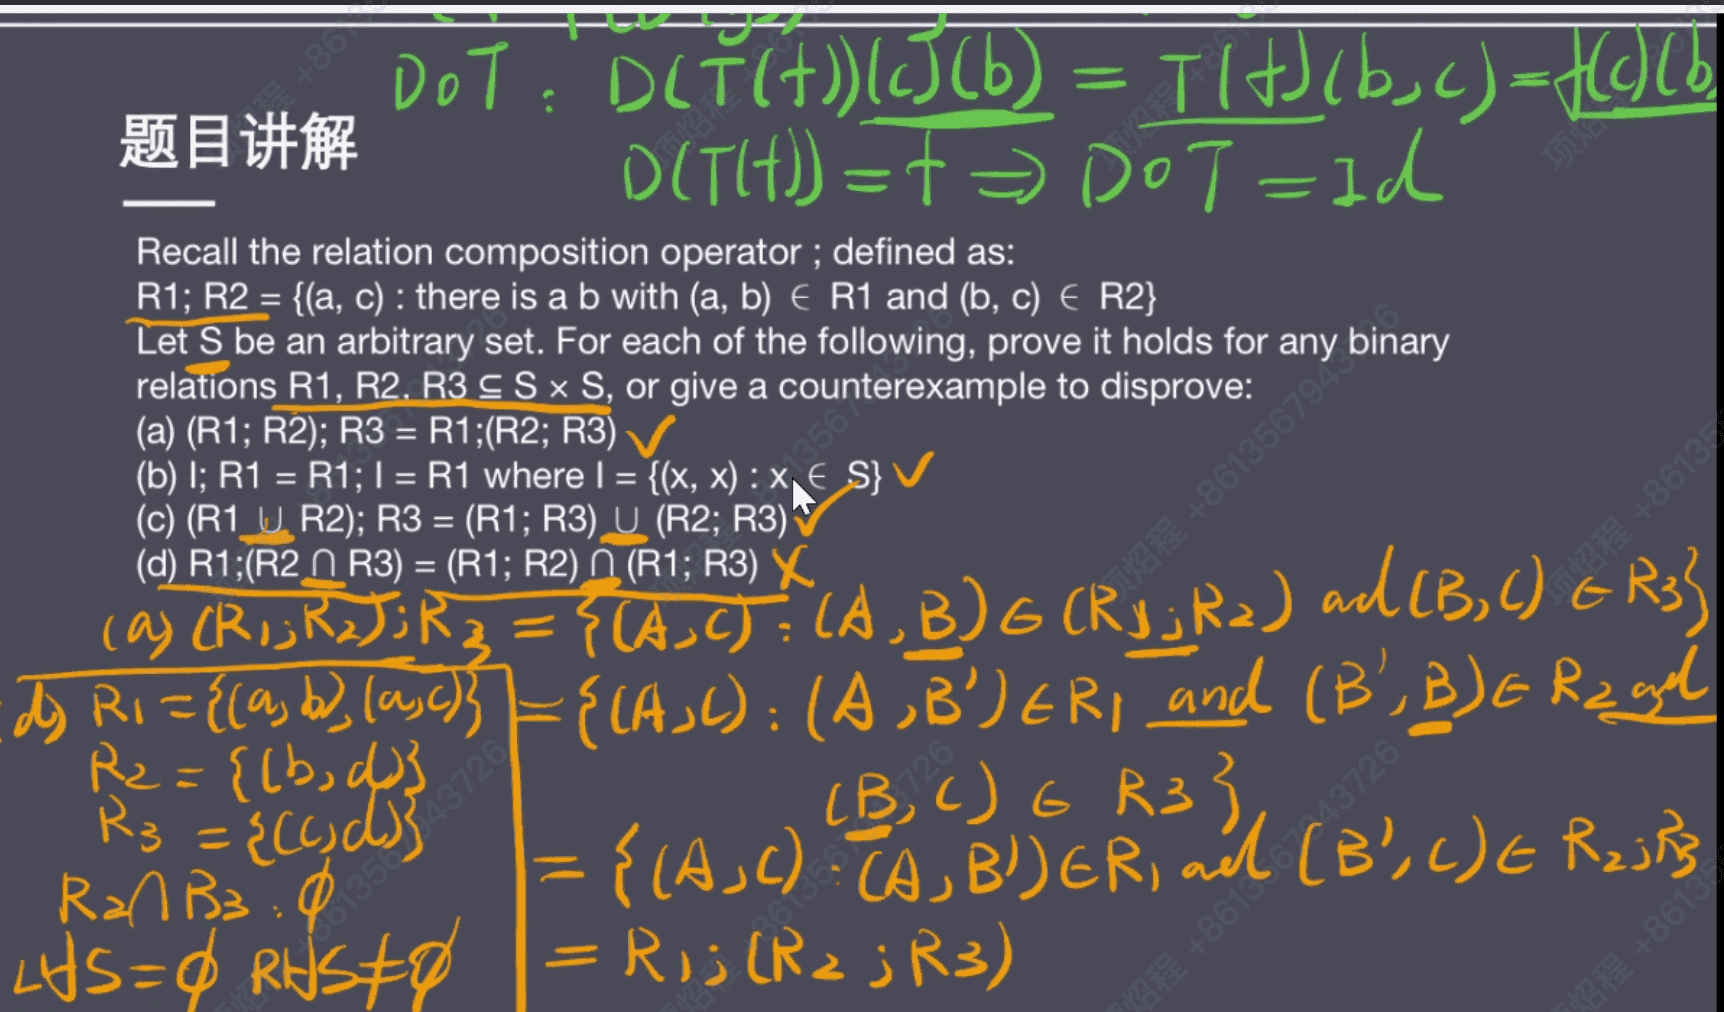 DoT : D(T(f))(c)(b) = T(f)(b,c) = f(c)(b)
D(T(f)) = f ⇒ DoT = Id
题目讲解
Recall the relation composition operator ; defined as:
R1; R2 = {(a, c) : there is a b with (a, b) ∈ R1 and (b, c) ∈ R2}
Let S be an arbitrary set. For each of the following, prove it holds for any binary
relations R1, R2, R3 ⊆ S × S, or give a counterexample to disprove:
(a) (R1; R2); R3 = R1;(R2; R3) ✓
(b) I; R1 = R1; I = R1 where I = {(x, x) : x ∈ S} ✓
(c) (R1 ∪ R2); R3 = (R1; R3) ∪ (R2; R3) ✓
(d) R1;(R2 ∩ R3) = (R1; R2) ∩ (R1; R3) ✗
(a) (R1;R2);R3 = {(A,C) : (A,B) ∈ (R1;R2) ad (B,C) ∈ R3}
= {(A,C) : (A,B') ∈ R1 and (B',B) ∈ R2 ad
(B,C) ∈ R3}
= {(A,C) : (A,B') ∈ R1 ad (B',C) ∈ R2;R3
= R1;(R2;R3)
d) R1 = {(a,b),(a,c)}
R2 = {(b,d)}
R3 = {(c,d)}
R2∩R3 : ϕ
LHS = ϕ RHS ≠ ϕ
项焰程 +8613567943726